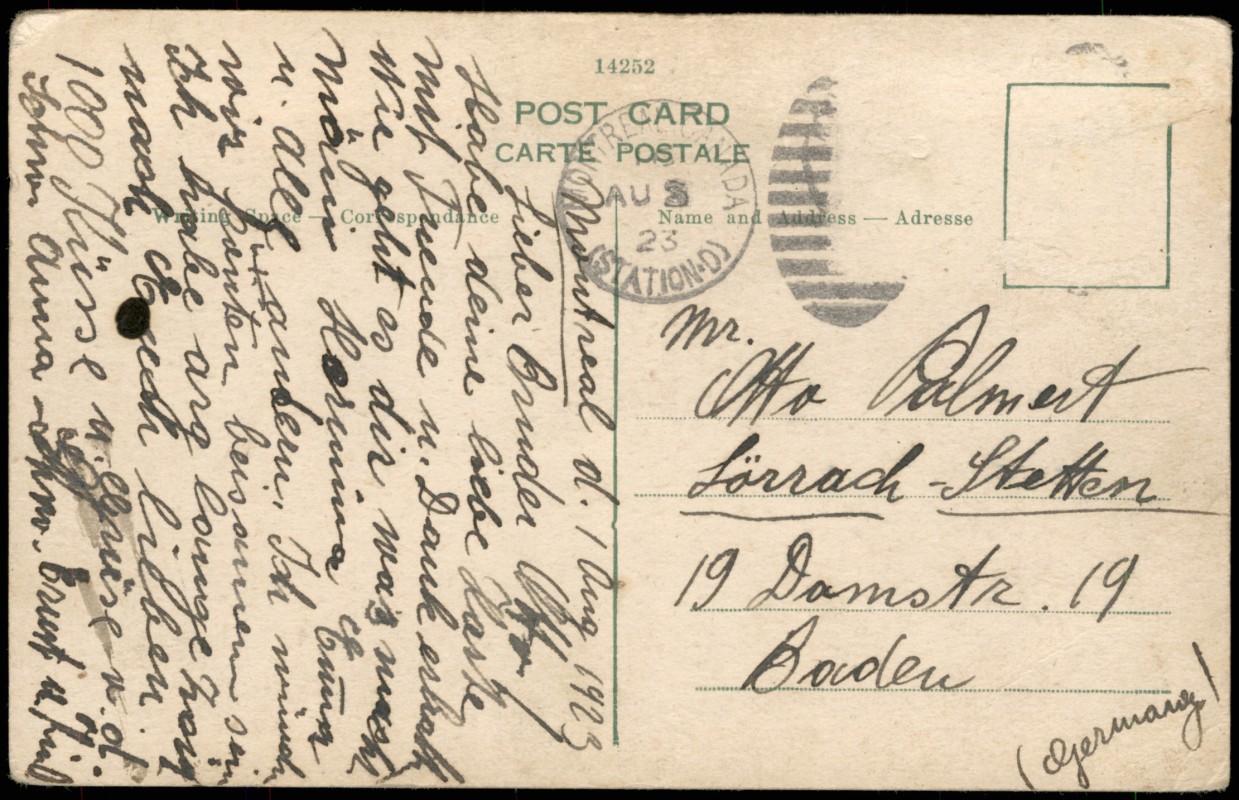 14252
POST CARD
CARTE POSTALE
Writing Space — Correspondance
Name and Address — Adresse
MONTREAL CANADA
AU 3
23
(STATION·D)
Montreal d. 1 Aug 1923
Lieber Bruder Otto!
Habe deine liebe Karte
mit Freude u. Dank erhalt
Wie geht es dir. was macht
Mäni Hermina Emma
u. alle andern. Ich wünsch
wir könten beisamen sein
Ich habe arg lange Zeit
nach Euch lieben
1000 Küsse u. Grüsse v. d.
Schw. Anna Schw. Ernst u. Kind
Mr.
Otto Palmert
Lörrach - Stetten
19 Damstr. 19
Baden
(Germany)